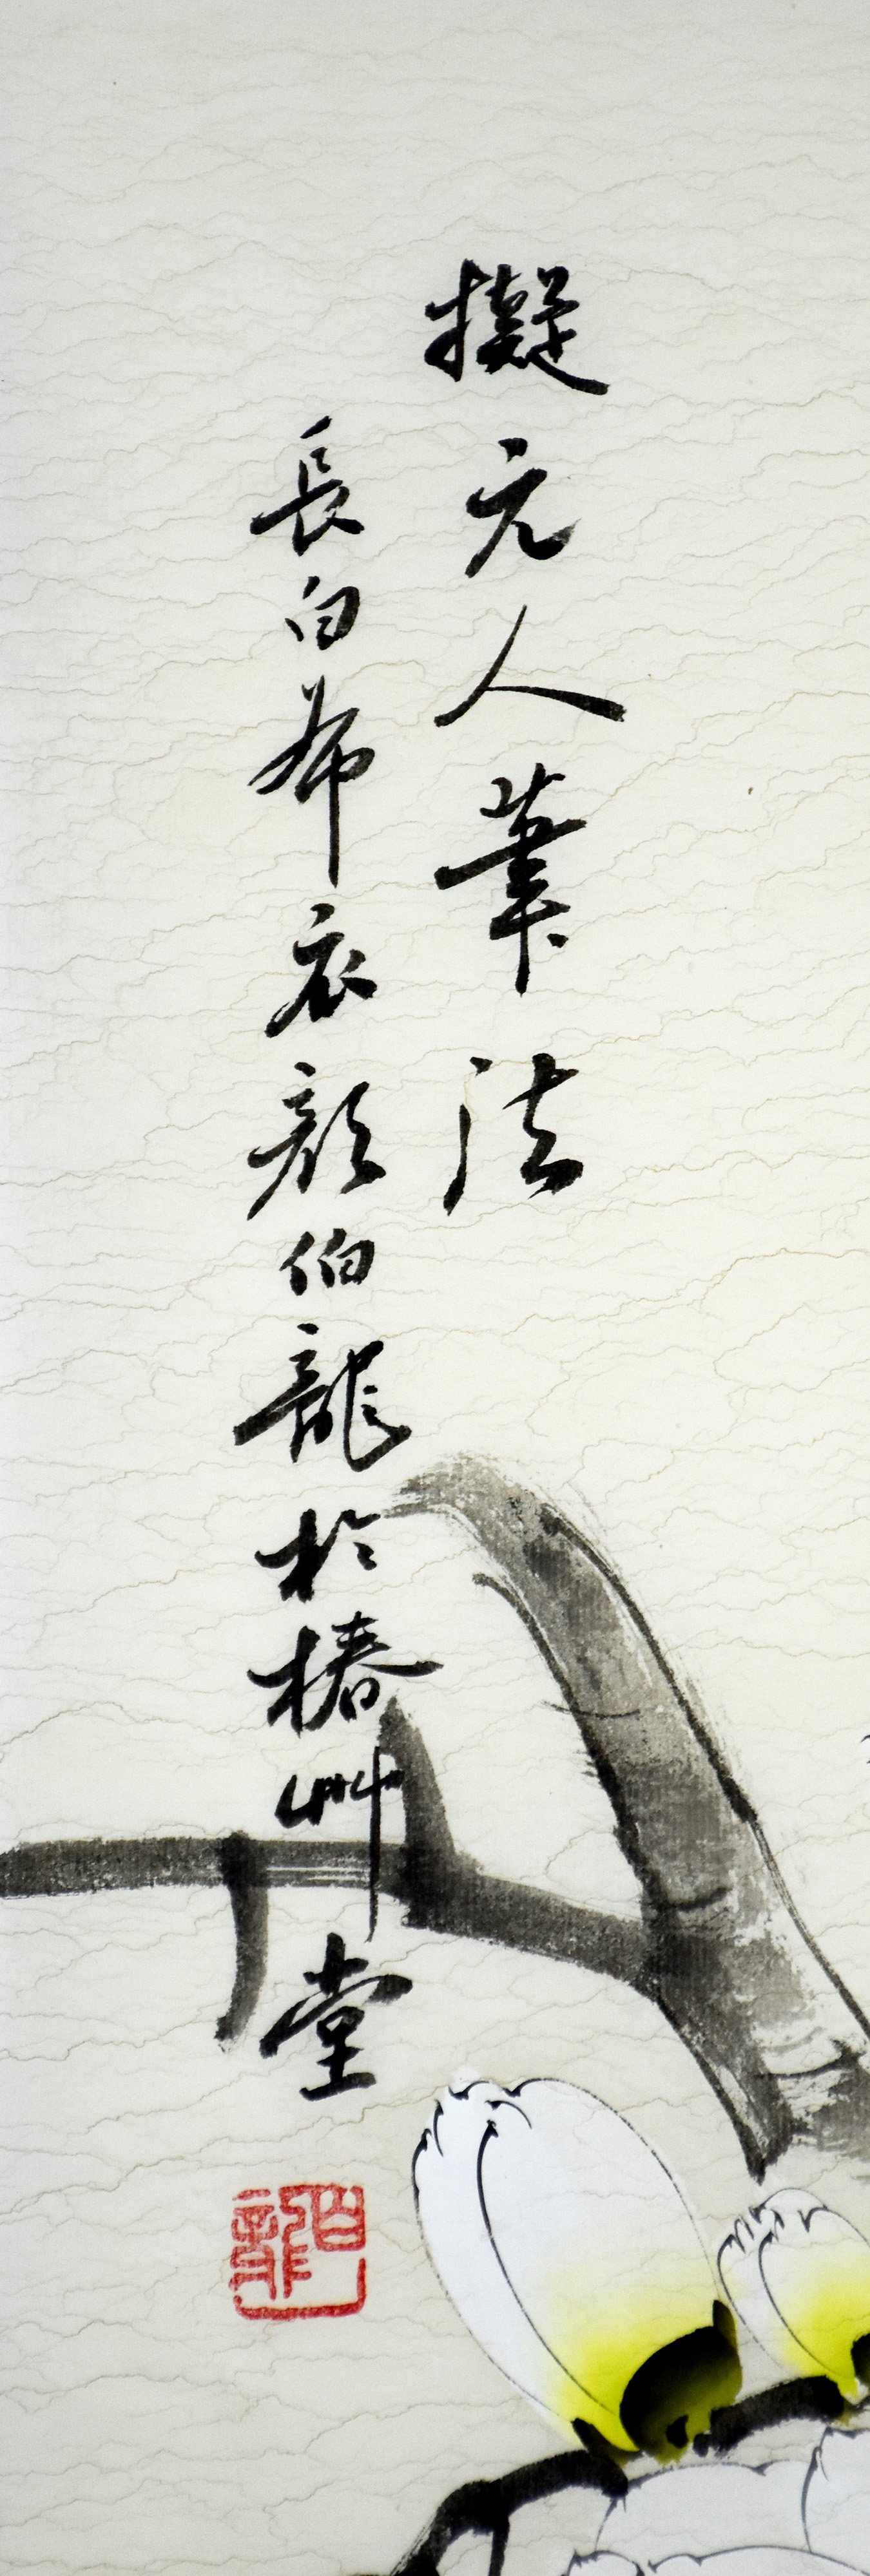 擬元人筆法
長白布衣顏伯龍於椿艸堂
伯龍